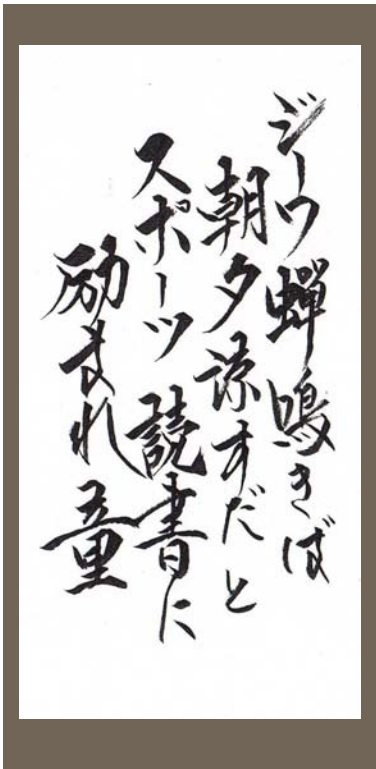 ジーワ蝉鳴きば
朝夕涼すだと
スポーツ読書に
励まれ童